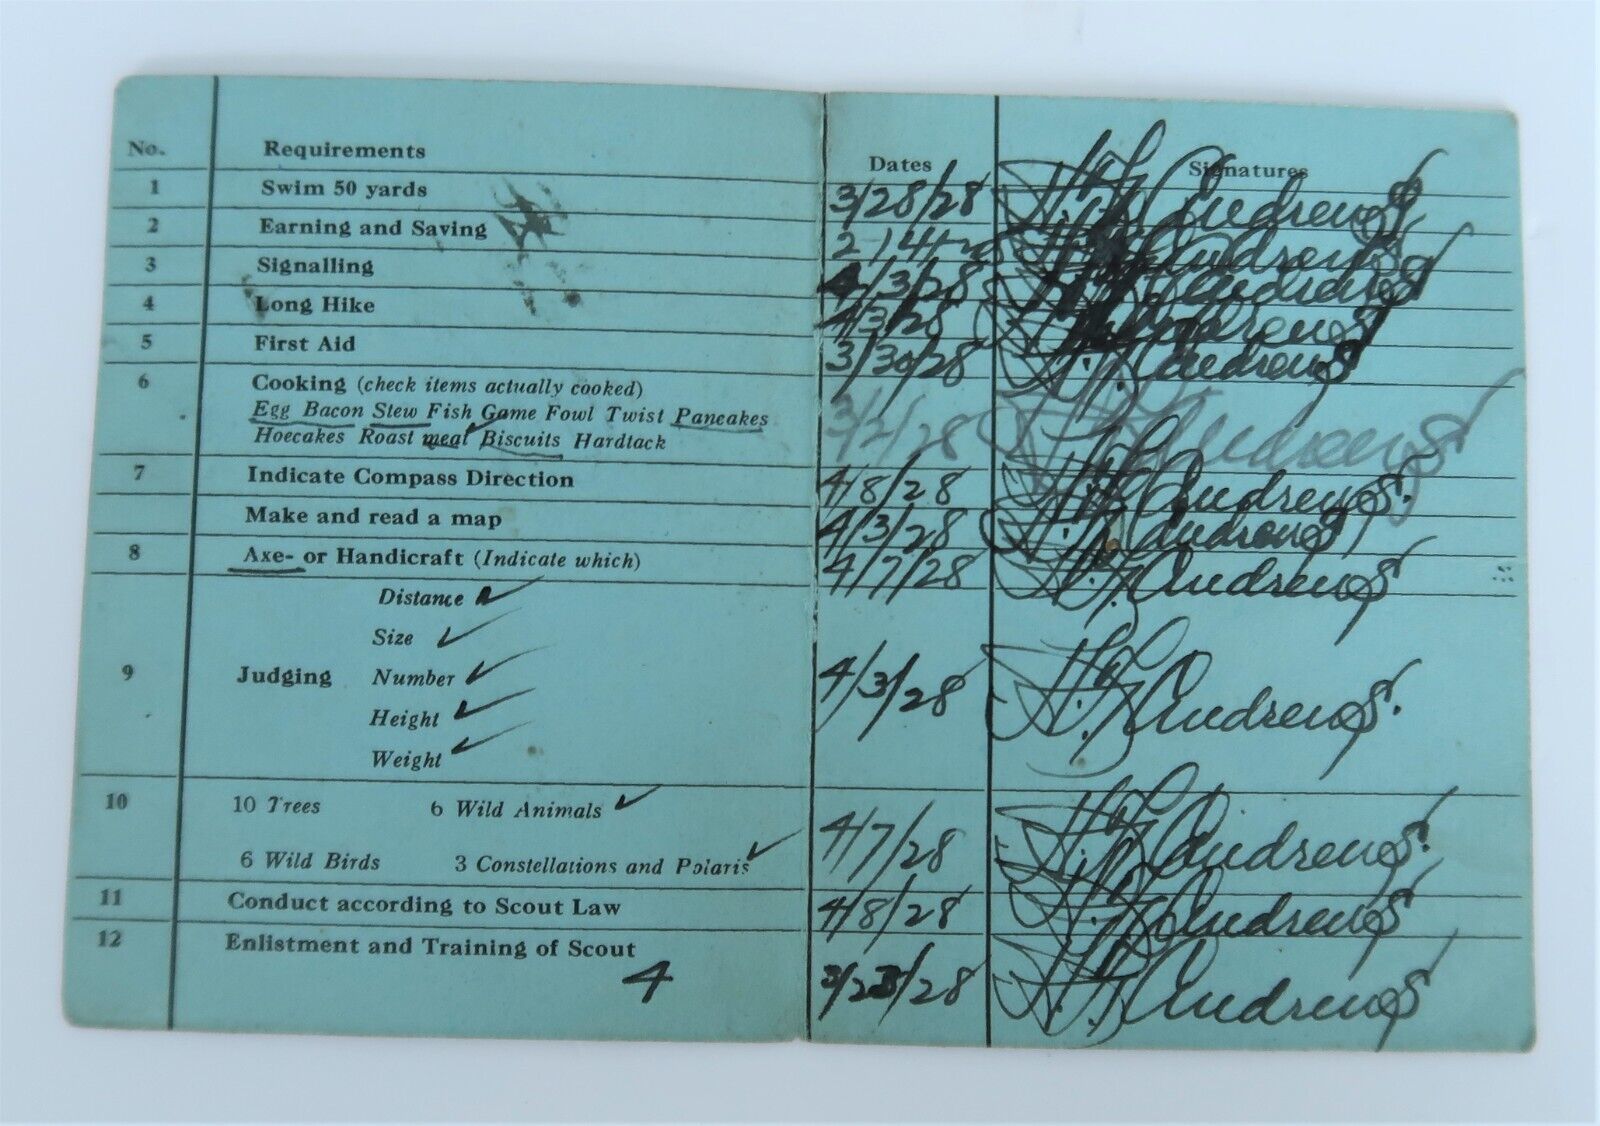 No. Requirements Dates Signatures
1 Swim 50 yards 3/28/28 Andrews
2 Earning and Saving Andrews
3 Signalling 4/3/28 Andrews
4 Long Hike 4/3/28 Andrews
5 First Aid 3/30/28 Andrews
6 Cooking (check items actually cooked)
Egg Bacon Stew Fish Game Fowl Twist Pancakes 3/2/28 Andrews
Hoecakes Roast meat Biscuits Hardtack
7 Indicate Compass Direction 4/8/28 Andrews.
Make and read a map 4/3/28 Andrews
8 Axe- or Handicraft (Indicate which) 4/7/28 Andrews
Distance
Size
9 Judging Number 4/3/28 Andrews.
Height
Weight
10 10 Trees 6 Wild Animals
6 Wild Birds 3 Constellations and Polaris 4/7/28 Andrews.
11 Conduct according to Scout Law 4/8/28 Andrews
12 Enlistment and Training of Scout 3/23/28 Andrews
4